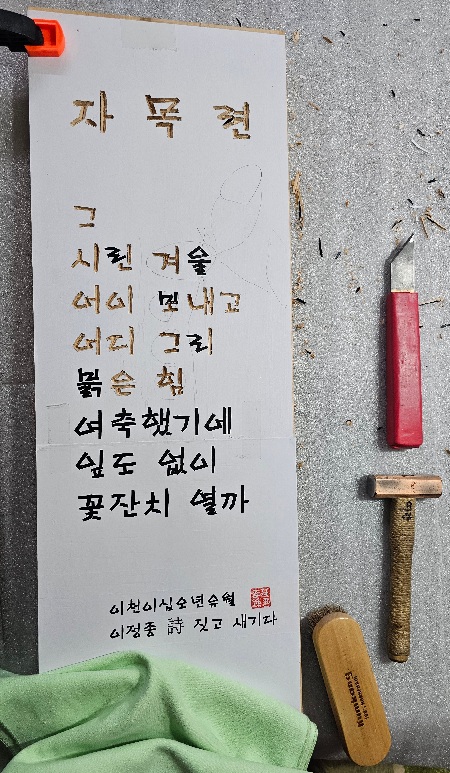 자목련
그
시린 겨울
어이 보내고
어디 그리
붉은 힘
여축했기에
잎도 없이
꽃잔치 열까
이천이십소년유월
이정종 詩 짓고 새기다